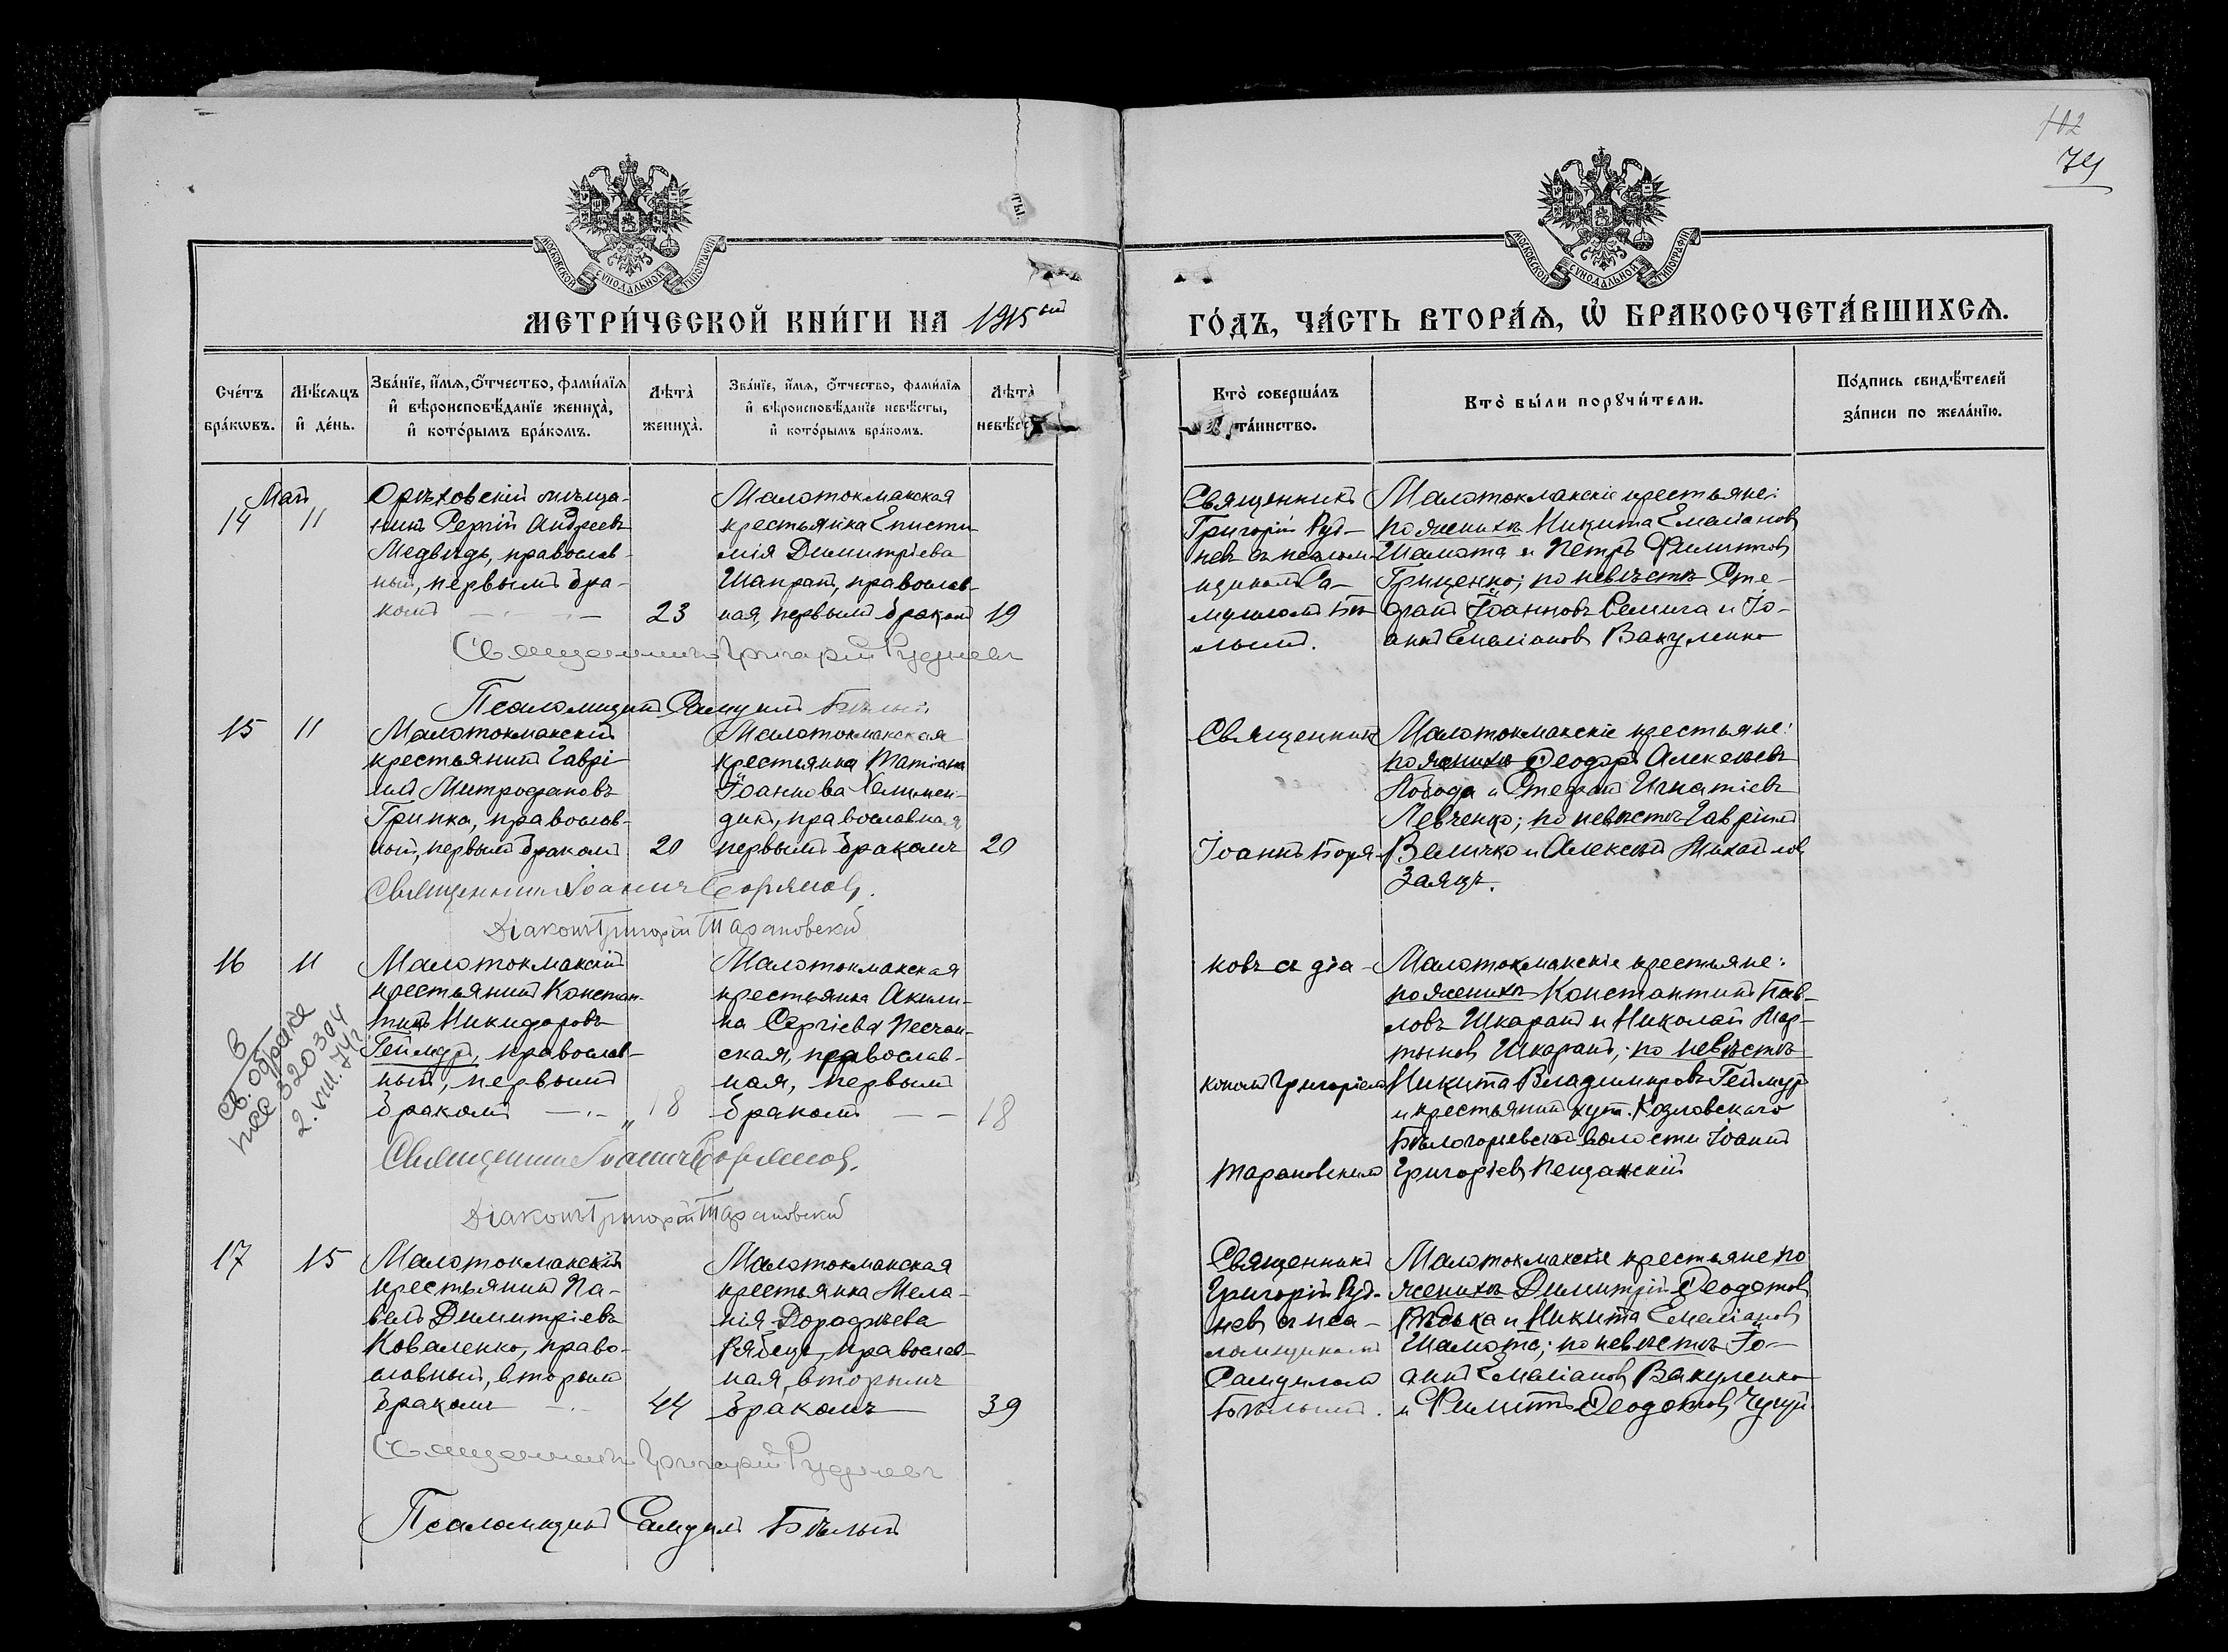 102
74
МОСКОВСКОЙ СѴНОДАЛЬНОЙ ТИПОГРАФІИ
МОСКОВСКОЙ СѴНОДАЛЬНОЙ ТИПОГРАФІИ
МЕТРИ́ЧЕСКОЙ КНИ́ГИ НА 1915 ый
ГО́ДЪ, ЧА́СТЬ ВТОРА́Ѧ, Ѡ҆ БРАКОСОЧЕТА́ВШИХСѦ.
Сче́тъ бра́кѡвъ.
Мѣ́сѧцъ и҆ де́нь.
Зва́нїе, и҆́мѧ, ѻ҆́тчество, фами́лїѧ
и҆ вѣроисповѣ́данїе жениха̀,
и҆ кото́рымъ бра́комъ.
Лѣта̀ жениха̀.
Зва́нїе, и҆́мѧ, ѻ҆́тчество, фами́лїѧ
и҆ вѣроисповѣ́данїе невѣ́сты,
и҆ кото́рымъ бра́комъ.
Лѣта̀
Кто̀ соверша́лъ
та́инство.
Кто̀ бы́ли порꙋчи́тели.
По́дпись свидѣ́телей
за́писи по жела́нїю.
Май
14 11
Орѣховскій мѣща-
нинъ Сергій Андреевъ
Медвидь, православ-
ный, первымъ бра-
комъ 23
Малотокмакская
крестьянка Еписти-
мія Димитріева
Шапрат, православ-
ная, первымъ бракомъ 19
Священникъ
Григорій Руд-
невъ съ псалом-
щикомъ Са-
муиломъ Бѣ-
лымъ.
Малотокмакскіе крестьяне:
по женихѣ Никита Емеліановъ
Шамота и Петръ Филиповъ
Гриценко; по невѣстѣ Сте-
фанъ Іоанновъ Семига и Іо-
аннъ Емеліановъ Вакуленко
Священникъ Григорій Рудневъ
Псаломщикъ Самуилъ Бѣлый
15 11
Малотокмакскій
крестьянинъ Гаврі-
илъ Митрофановъ
Грипка, православ-
ный, первымъ бракомъ 20
Малотокмакская
крестьянка Татіана
Іоаннова
православная
первымъ бракомъ 20
Священникъ
Іоаннъ Боря-
Малотокмакскіе крестьяне:
по женихѣ Ѳеодоръ Алексѣевъ
Стефанъ Игнатіевъ
Левченко; по невѣстѣ Гавріилъ
Величко и Алексѣй Михайловъ
Заяцъ.
Священникъ Іоаннъ Боряковъ.
Діаконъ Григорій Тарановскій
16 11
Малотокмакскій
крестьянинъ Констан-
тинъ Никифоровъ
Геймуръ, православ-
ный, первымъ
бракомъ 18
Малотокмакская
крестьянка Акили-
на Сергіева Песчан-
ская, православ-
ная, первымъ
бракомъ 18
В
св. о браке
нее 320304
2.VIII.74г
ковъ съ діа-
кономъ Григоріемъ
Тарановскимъ
Малотокмакскіе крестьяне:
по женихѣ Константинъ Пав-
ловъ Шкарапъ и Николай Мар-
тыновъ Шкарапъ; по невѣстѣ
Никита Владимировъ Геймуръ
и крестьянинъ хут. Козловскаго
волости Іоаннъ
Григоріевъ Пещанскій
Священникъ Іоаннъ Боряковъ.
Діаконъ Григорій Тарановскій
17 15
Малотокмакскій
крестьянинъ Па-
велъ Димитріевъ
Коваленко, право-
славный, вторымъ
бракомъ 44
Малотокмакская
крестьянка Мела-
нія Дорофѣева
Рябецъ, православ-
ная, вторымъ
бракомъ 39
Священникъ
Григорій Руд-
невъ съ пса-
ломщикомъ
Самуиломъ
Бѣлымъ.
Малотокмакскіе крестьяне по
женихѣ Димитрій Ѳеодотовъ
Рѣдька и Никита Емеліановъ
Шамота; по невѣстѣ Іо-
аннъ Емеліановъ Вакуленко
и Филиппъ Ѳеодотовъ Чугуй.
Священникъ Григорій Рудневъ
Псаломщикъ Самуилъ Бѣлый